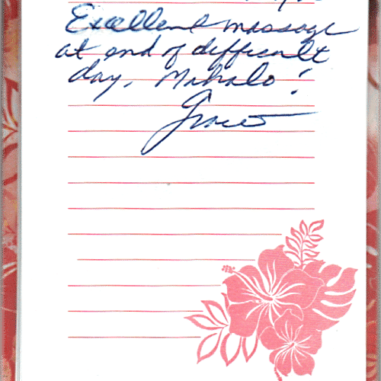 Excellent massage
at end of difficult
day. Mahalo!
Grace